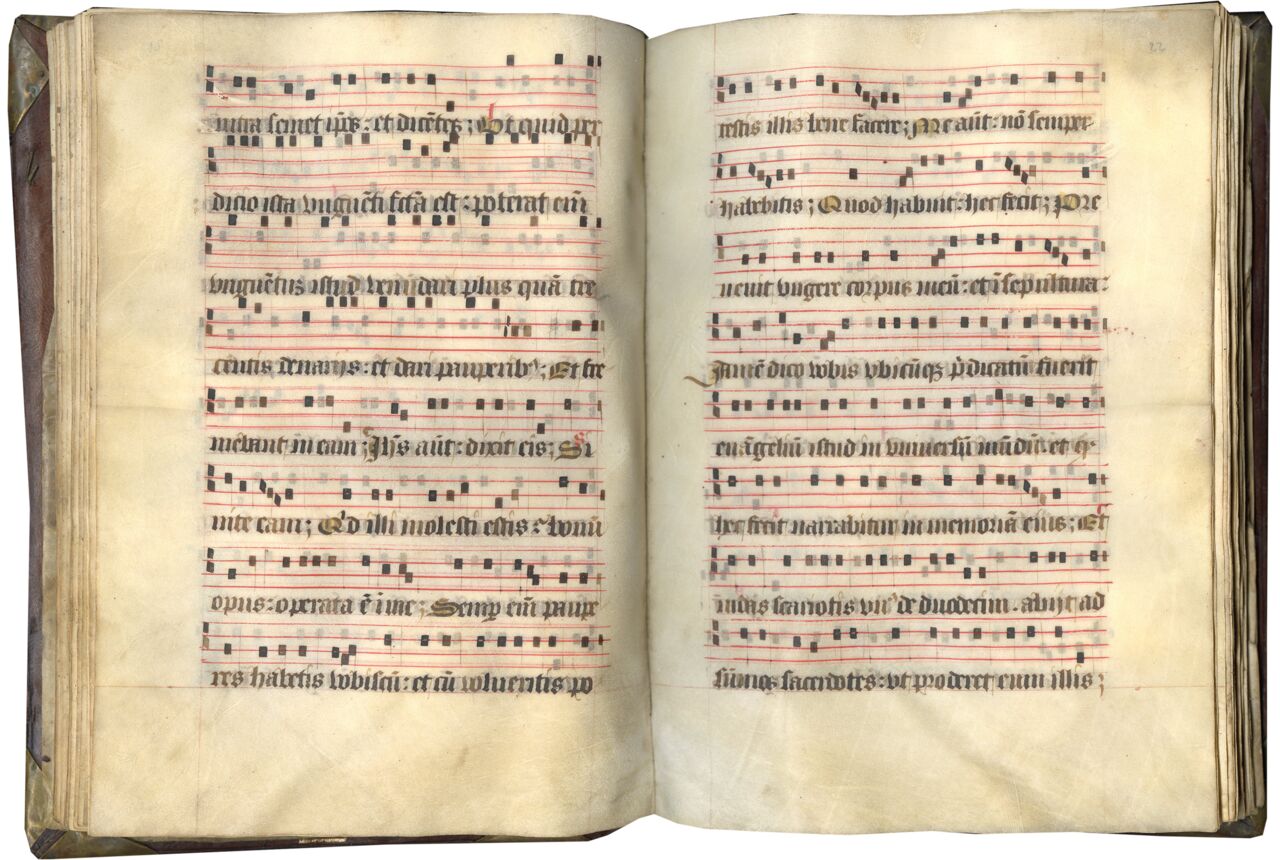 intra semet ip̄os : et dicẽtes ; Ut quid per
ditio ista vnguẽti fcã est : poterat eni̅
vnguẽtuȝ istud venu̅dari plus quã tre
centis denarijs : et dari pauperibꝰ ; Et fre
mebant in eam ; Ihs̄ aũt : dixit eis ; Si
nite eam ; Q'd illi molesti estis : bonũ
opus : operata ẽ i̅ me ; Semp̱ eni̅ paupe
res habetis vobiscũ : et cũ volueritis po
22
testis illis bene facere ; Me aũt : nõ semper
habebitis ; Quod habuit : hec fecit ; Pre
uenit vngere corpus meũ : et i̅ sepultura :
Amẽ dico vobis vbicũqȝ p̄dicatũ fuerit
euãgeliũ istud in vniuersũ mũdũ : et qꝫ
hec fecit narrabitur in memoriã eius ; Et
iudas scariotis vnꝰ de duodecim . abijt ad
sũmos sacerdotes : vt proderet eum illis ;